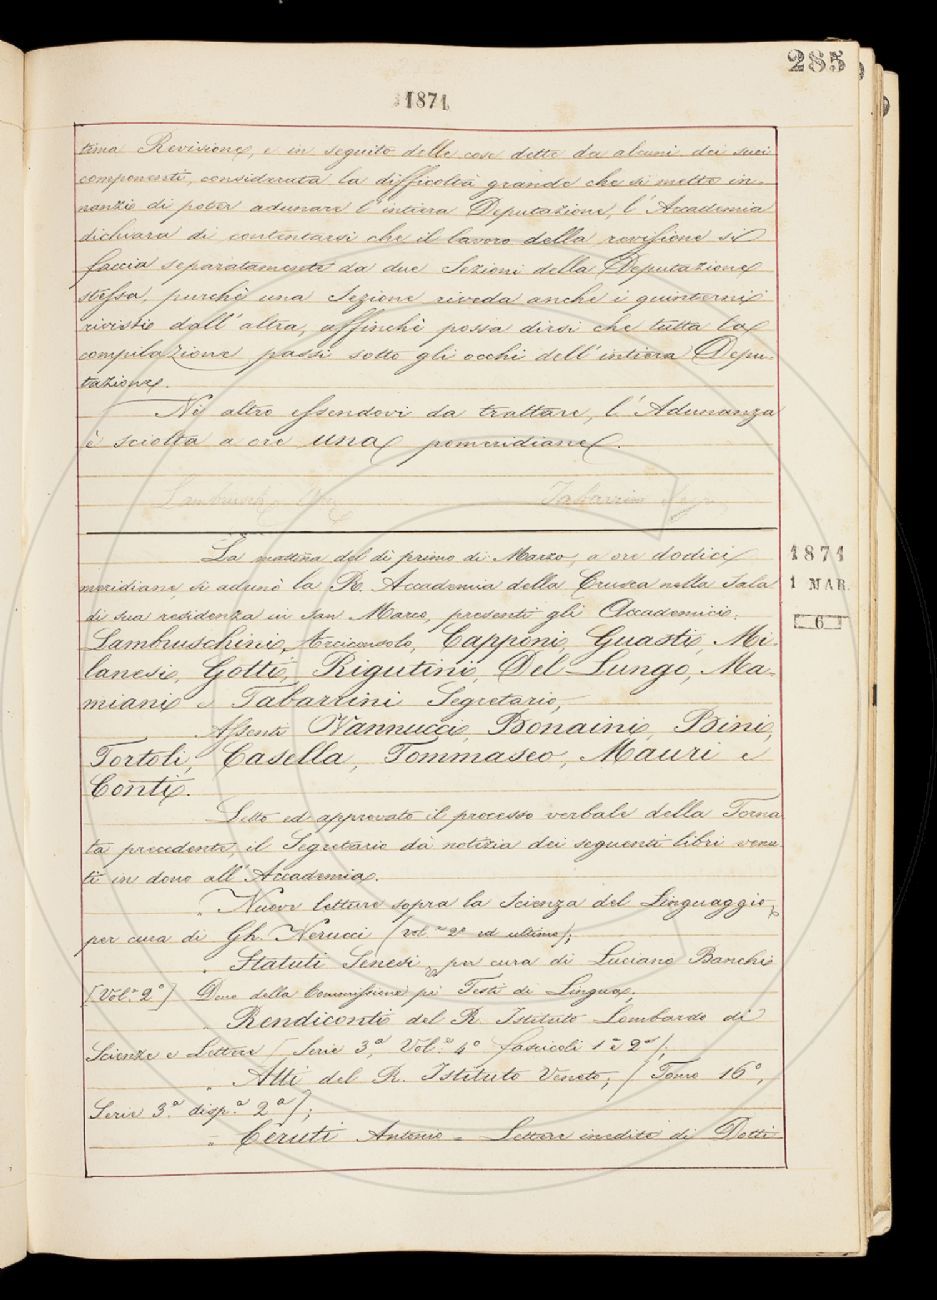 285
1871
tima Revisione, e in seguito delle cose dette da alcuni dei suoi
componenti, considerata la difficoltà grande che si mette in-
nanzi di poter adunare l'intiera Deputazione, l'Accademia
dichiara di contentarsi che il lavoro della revisione si
faccia separatamente da due Sezioni della Deputazione
stessa, purchè una Sezione riveda anche i quinterni
rivisti dall'altra, affinchè possa dirsi che tutta la
compilazione passi sotto gli occhi dell'intiera Depu-
tazione.
Nè altro essendovi da trattare, l'Adunanza
è sciolta a ore una pomeridiane.
Lambruschi Tabarrini Segr
La mattina del dì primo di Marzo, a ore dodici
meridiane, si adunò la R. Accademia della Crusca nella Sala
di sua residenza in San Marco, presenti gli Accademici:
Lambruschini, Arciconsolo, Capponi, Guasti, Mi-
lanesi, Gotti, Rigutini, Del Lungo, Ma-
miani e Tabarrini Segretario,
Assenti Vannucci, Bonaini, Bini,
Tortoli, Casella, Tommaseo, Mauri e
Conti.
1871
1 MAR.
6
Letto ed approvato il processo verbale della Torna
ta precedente, il Segretario dà notizia dei seguenti libri venu
ti in dono all'Accademia.
" Nuove letture sopra la Scienza del Linguaggio,
per cura di Gh. Nerucci (vol.e 2º ed ultimo);
" Statuti Senesi, per cura di Luciano Banchi
[Vol.e 2º] Dono della Commissione pei Testi di Lingua;
" Rendiconti del R. Istituto Lombardo di
Scienze e Lettere (Serie 3.a, Vol.e 4º fascicoli 1º e 2º);
" Atti del R. Istituto Veneto; (Tomo 16º,
Serie 3.a disp.a 2.a);
" Ceruti Antonio = Lettere inedite di Dotti